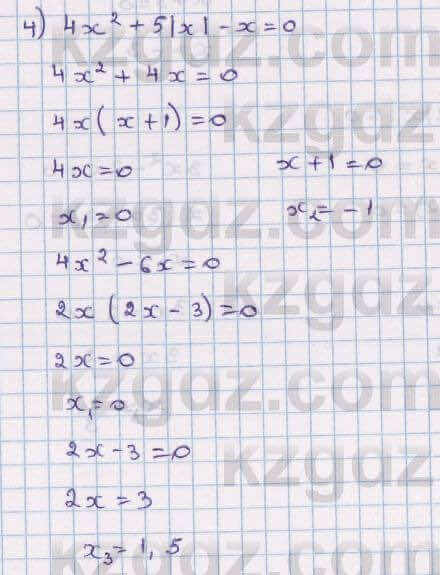 4) 4x² + 5|x| - x = 0
4x² + 4x = 0
4x(x+1) = 0
4x = 0    x + 1 = 0
x₁ = 0    x₂ = -1
4x² - 6x = 0
2x (2x - 3) = 0
2x = 0
x₁ = 0
2x - 3 = 0
2x = 3
x₃ = 1,5
kzgdz.com
kzgdz.com
kzgdz.com
kzgdz.com
kzgdz.com
kzgdz.com